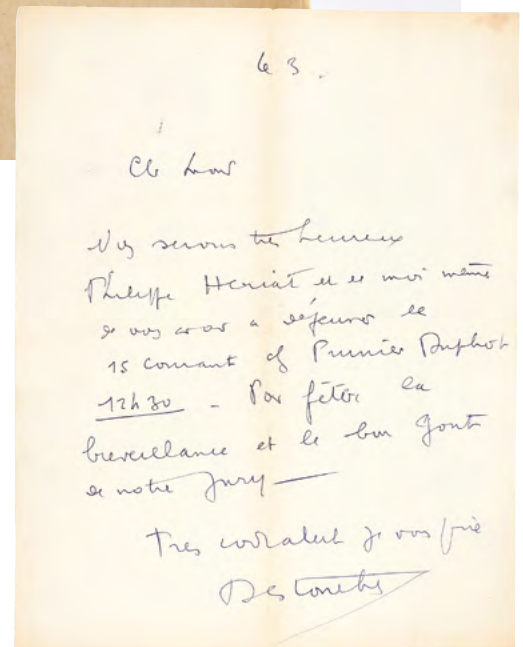 le 3.
Ch
Ns serons très heureux
Philippe Hériat et moi même
de vs avoir à déjeuner le
15 courant ch Prunier Duphot
12h30 - Pour fêter la
bienveillance et le bon gout
de notre Jury —
Très cordialemt je vous prie
Destouches